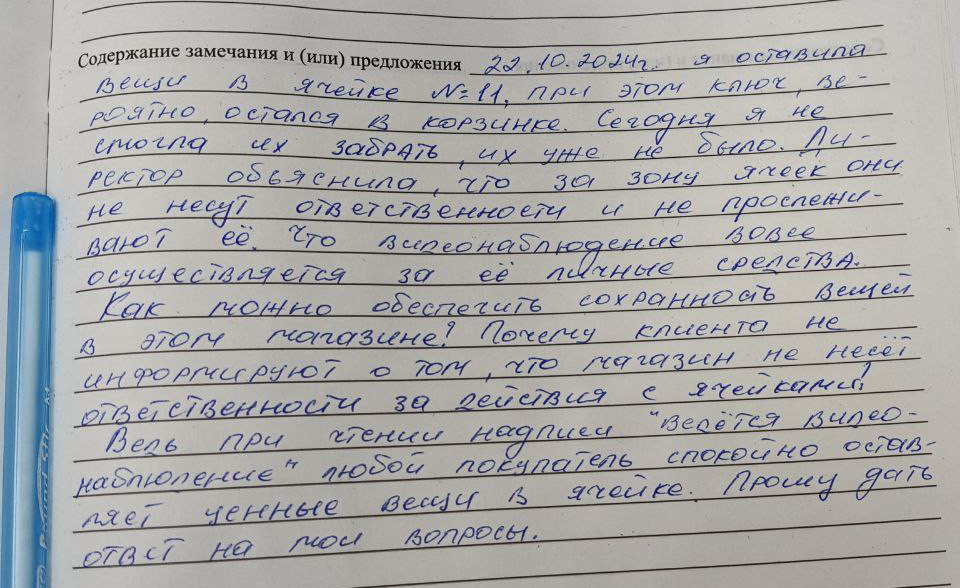 Содержание замечания и (или) предложения 22.10.2024г. я оставила
вещи в ячейке №11, при этом ключ, ве-
роятно, остался в корзинке. Сегодня я не
смогла их забрать, их уже не было. Ди-
ректор объяснила, что за зону ячеек они
не несут ответственности и не прослежи-
вают её. Что видеонаблюдение вовсе
осуществляется за её личные средства.
Как можно обеспечить сохранность вещей
в этом магазине? Почему клиента не
информируют о том, что магазин не несёт
ответственности за действия с ячейками?
Ведь при чтении надписи "Ведётся видео-
наблюдение" любой покупатель спокойно остав-
ляет ценные вещи в ячейке. Прошу дать
ответ на мои вопросы.